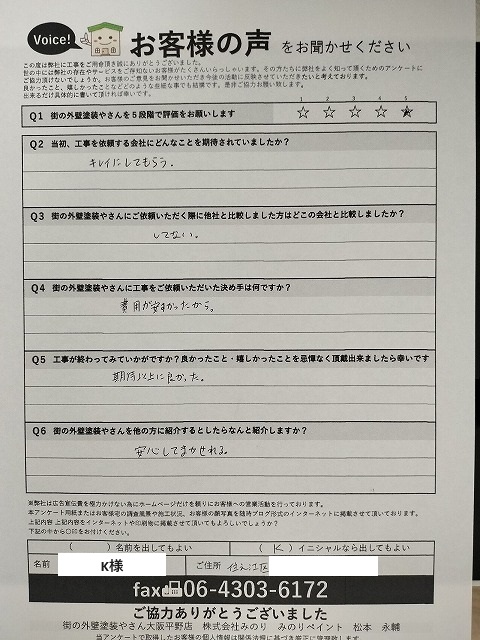 Voice! お客様の声 をお聞かせください
この度は弊社に工事をご用命頂き誠にありがとうございました。
世の中には弊社の存在やサービスをご存知ないお客様がたくさんいらっしゃいます。その方たちに弊社をよく知って頂くためのアンケートに
ご協力頂けないでしょうか。お客様のご意見をお聞かせいただき今後の活動に反映させていただきたいと考えております。
良かったこと、嬉しかったことなどどのような些細な事でも結構です。是非ご協力お願い致します。
出来るだけ具体的に書いて頂ければ幸いです。
Q1 街の外壁塗装やさんを5段階で評価をお願いします
1 2 3 4 5
☆ ☆ ☆ ☆ ★
Q2 当初、工事を依頼する会社にどんなことを期待されていましたか?
キレイにしてもらう。
Q3 街の外壁塗装やさんにご依頼いただく際に他社と比較しました方はどこの会社と比較しましたか?
してない。
Q4 街の外壁塗装やさんに工事をご依頼いただいた決め手は何ですか?
費用が安すかったから。
Q5 工事が終わってみていかがですか?良かったこと・嬉しかったことを忌憚なく頂戴出来ましたら幸いです
期待以上に良かった。
Q6 街の外壁塗装やさんを他の方に紹介するとしたらなんと紹介しますか?
安心してまかせれる。
※弊社は広告宣伝費を極力かけない為にホームページだけを頼りにお客様への営業活動を行っております。
本アンケート用紙またはお客様宅の調査風景や施工状況、お客様の顔写真を随時ブログ形式のインターネットに掲載させて頂いております。
上記内容 上記内容をインターネットや印刷物に掲載させて頂いてもよろしいでしょうか?
下記の中から〇印をお付けください。
( ) 名前を出してもよい ( K ) イニシャルなら出してもよい
名前 K様 ご住所 住之江区
fax 06-4303-6172
ご協力ありがとうございました
街の外壁塗装やさん大阪平野店 株式会社みのり みのりペイント 松本 永輔
当アンケートで取得したお客様の個人情報は関係法規に基づき厳正に管理致します。